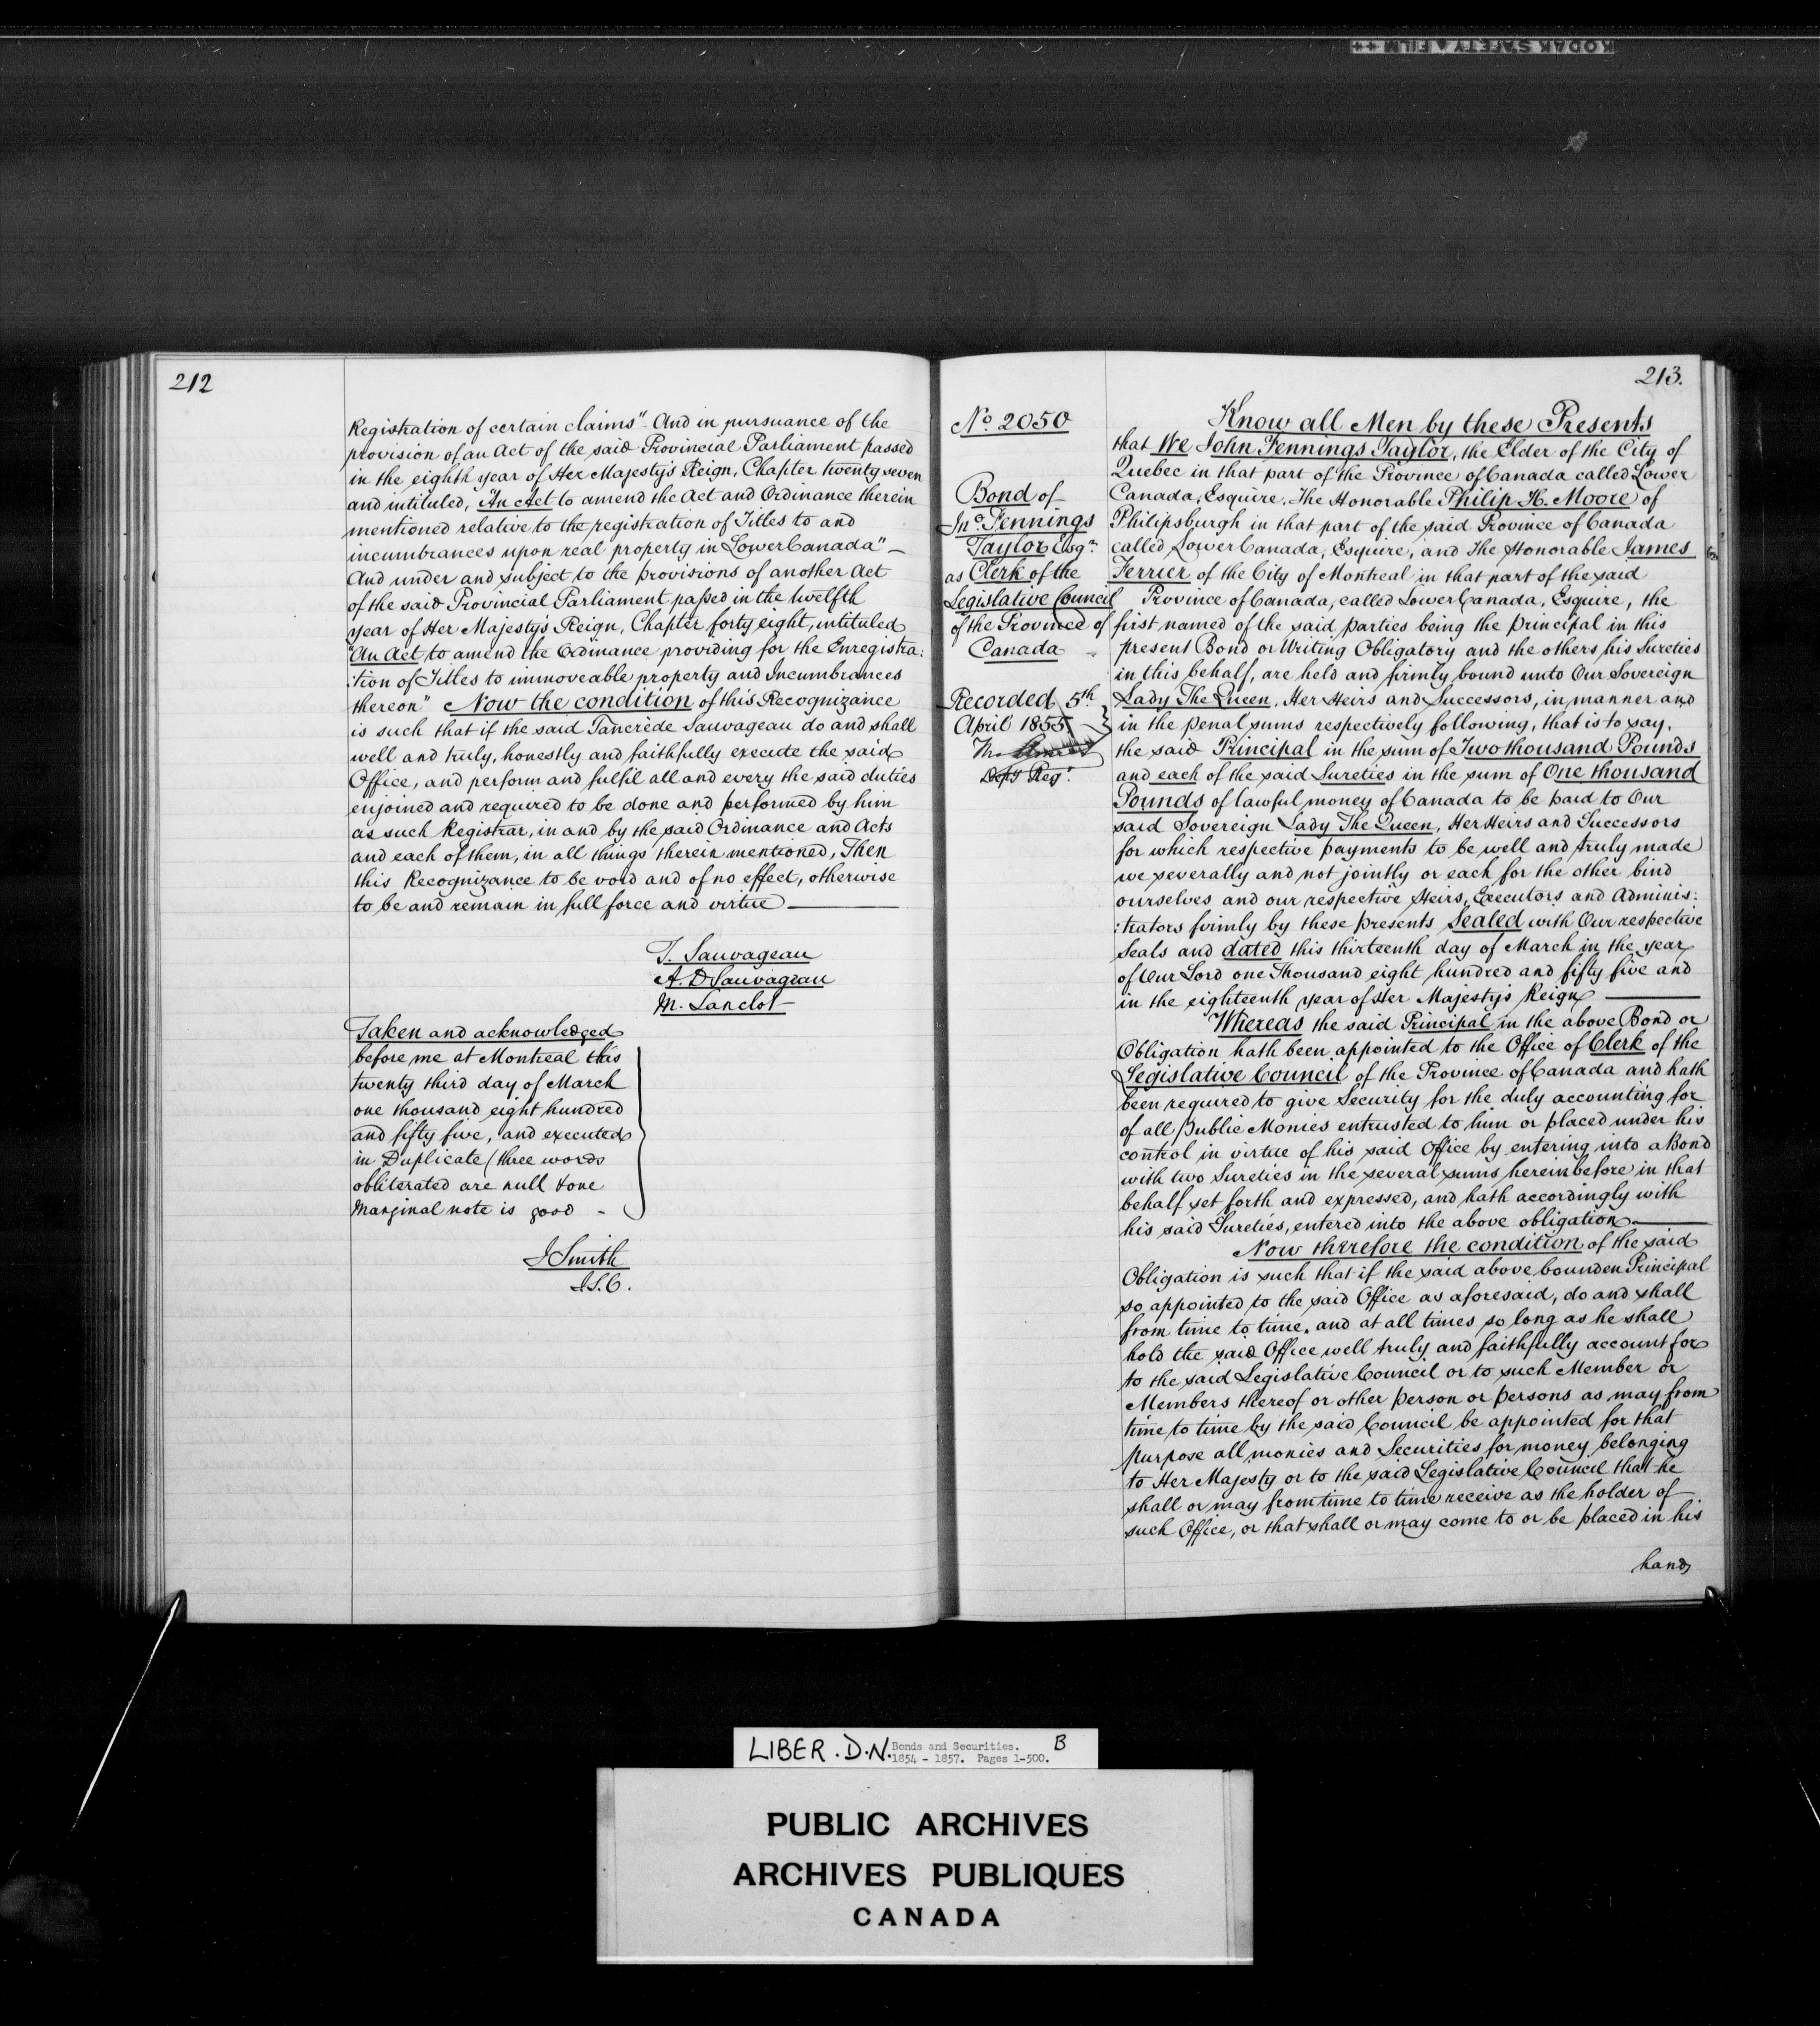 KODAK SAFETY ▲ FILM ++
212
Registration of certain claims" And in pursuance of the
provision of an Act of the said Provincial Parliament passed
in the eighth year of Her Majesty's Reign, Chapter twenty seven
and intituled, "An Act to amend the Act and Ordinance therein
mentioned relative to the registration of Titles to and
incumbrances upon real property in Lower Canada" –
And under and subject to the provisions of another Act
of the said Provincial Parliament passed in the twelfth
year of Her Majesty's Reign, Chapter forty eight, intituled
"An Act to amend the Ordinance providing for the Enregistra:
:tion of Titles to immoveable property and Incumbrances
thereon" Now the condition of this Recognizance
is such that if the said Tancrède Sauvageau do and shall
well and truly, honestly and faithfully execute the said
Office, and perform and fulfil all and every the said duties
enjoined and required to be done and performed by him
as such Registrar, in and by the said Ordinance and Acts
and each of them, in all things therein mentioned, Then
this Recognizance to be void and of no effect, otherwise
to be and remain in full force and virtue —
T. Sauvageau
A. D Sauvageau
M. Lanclot
Taken and acknowledged
before me at Montreal this
twenty third day of March
one thousand eight hundred
and fifty five, and executed
in Duplicate (three words
obliterated are null & one
Marginal note is good –
J Smith
J.S.C.
213.
No. 2050
Bond of
Jno. Fennings
Taylor Esqr.
as Clerk of the
Legislative Council
of the Province of
Canada –
Recorded 5th
April 1855
Dpy Regr.
Know all Men by these Presents
that We John Fennings Taylor, the Elder of the City of
Quebec in that part of the Province of Canada called Lower
Canada, Esquire. The Honorable Philip H. Moore of
Philipsburgh in that part of the said Province of Canada
called Lower Canada, Esquire, and The Honorable James
Ferrier of the City of Montreal in that part of the said
Province of Canada, called Lower Canada, Esquire, the
first named of the said parties being the Principal in this
present Bond or Writing Obligatory and the others his Sureties
in this behalf, are held and firmly bound unto Our Sovereign
Lady The Queen, Her Heirs and Successors, in manner and
in the penal sums respectively following, that is to say,
the said Principal in the sum of Two thousand Pounds
and each of the said Sureties in the sum of One thousand
Pounds of lawful money of Canada to be paid to Our
said Sovereign Lady The Queen, Her Heirs and Successors
for which respective payments to be well and truly made
we severally and not jointly or each for the other bind
ourselves and our respective Heirs, Executors and Adminis:
:trators firmly by these presents Sealed with Our respective
Seals and dated this thirteenth day of March in the year
of Our Lord one Thousand eight hundred and fifty five and
in the eighteenth year of Her Majesty's Reign —
Whereas the said Principal in the above Bond or
Obligation hath been appointed to the Office of Clerk of the
Legislative Council of the Province of Canada and hath
been required to give Security for the duly accounting for
of all Public Monies entrusted to him or placed under his
control in virtue of his said Office by entering into a Bond
with two Sureties in the several sums hereinbefore in that
behalf set forth and expressed, and hath accordingly with
his said Sureties, entered into the above obligation —
Now therefore the condition of the said
Obligation is such that if the said above bounden Principal
so appointed to the said Office as aforesaid, do and shall
from time to time, and at all times so long as he shall
hold the said Office well truly and faithfully account for
to the said Legislative Council or to such Member or
Members thereof or other person or persons as may from
time to time by the said Council be appointed for that
purpose all monies and Securities for money belonging
to Her Majesty or to the said Legislative Council that he
shall or may from time to time receive as the holder of
such Office, or that shall or may come to or be placed in his
hands
LIBER. D.N. Bonds and Securities. B
1854 - 1857. Pages 1-500.
PUBLIC ARCHIVES
ARCHIVES PUBLIQUES
CANADA